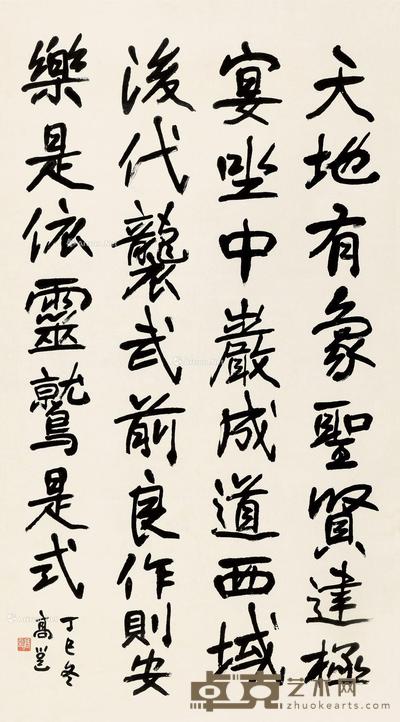 天地有象聖賢達極
宴坐中巖成道西域
後代襲武前良作則安
樂是依靈鷲是式
丁巳冬
高邕
卓克艺术网
www.zhuokearts.com